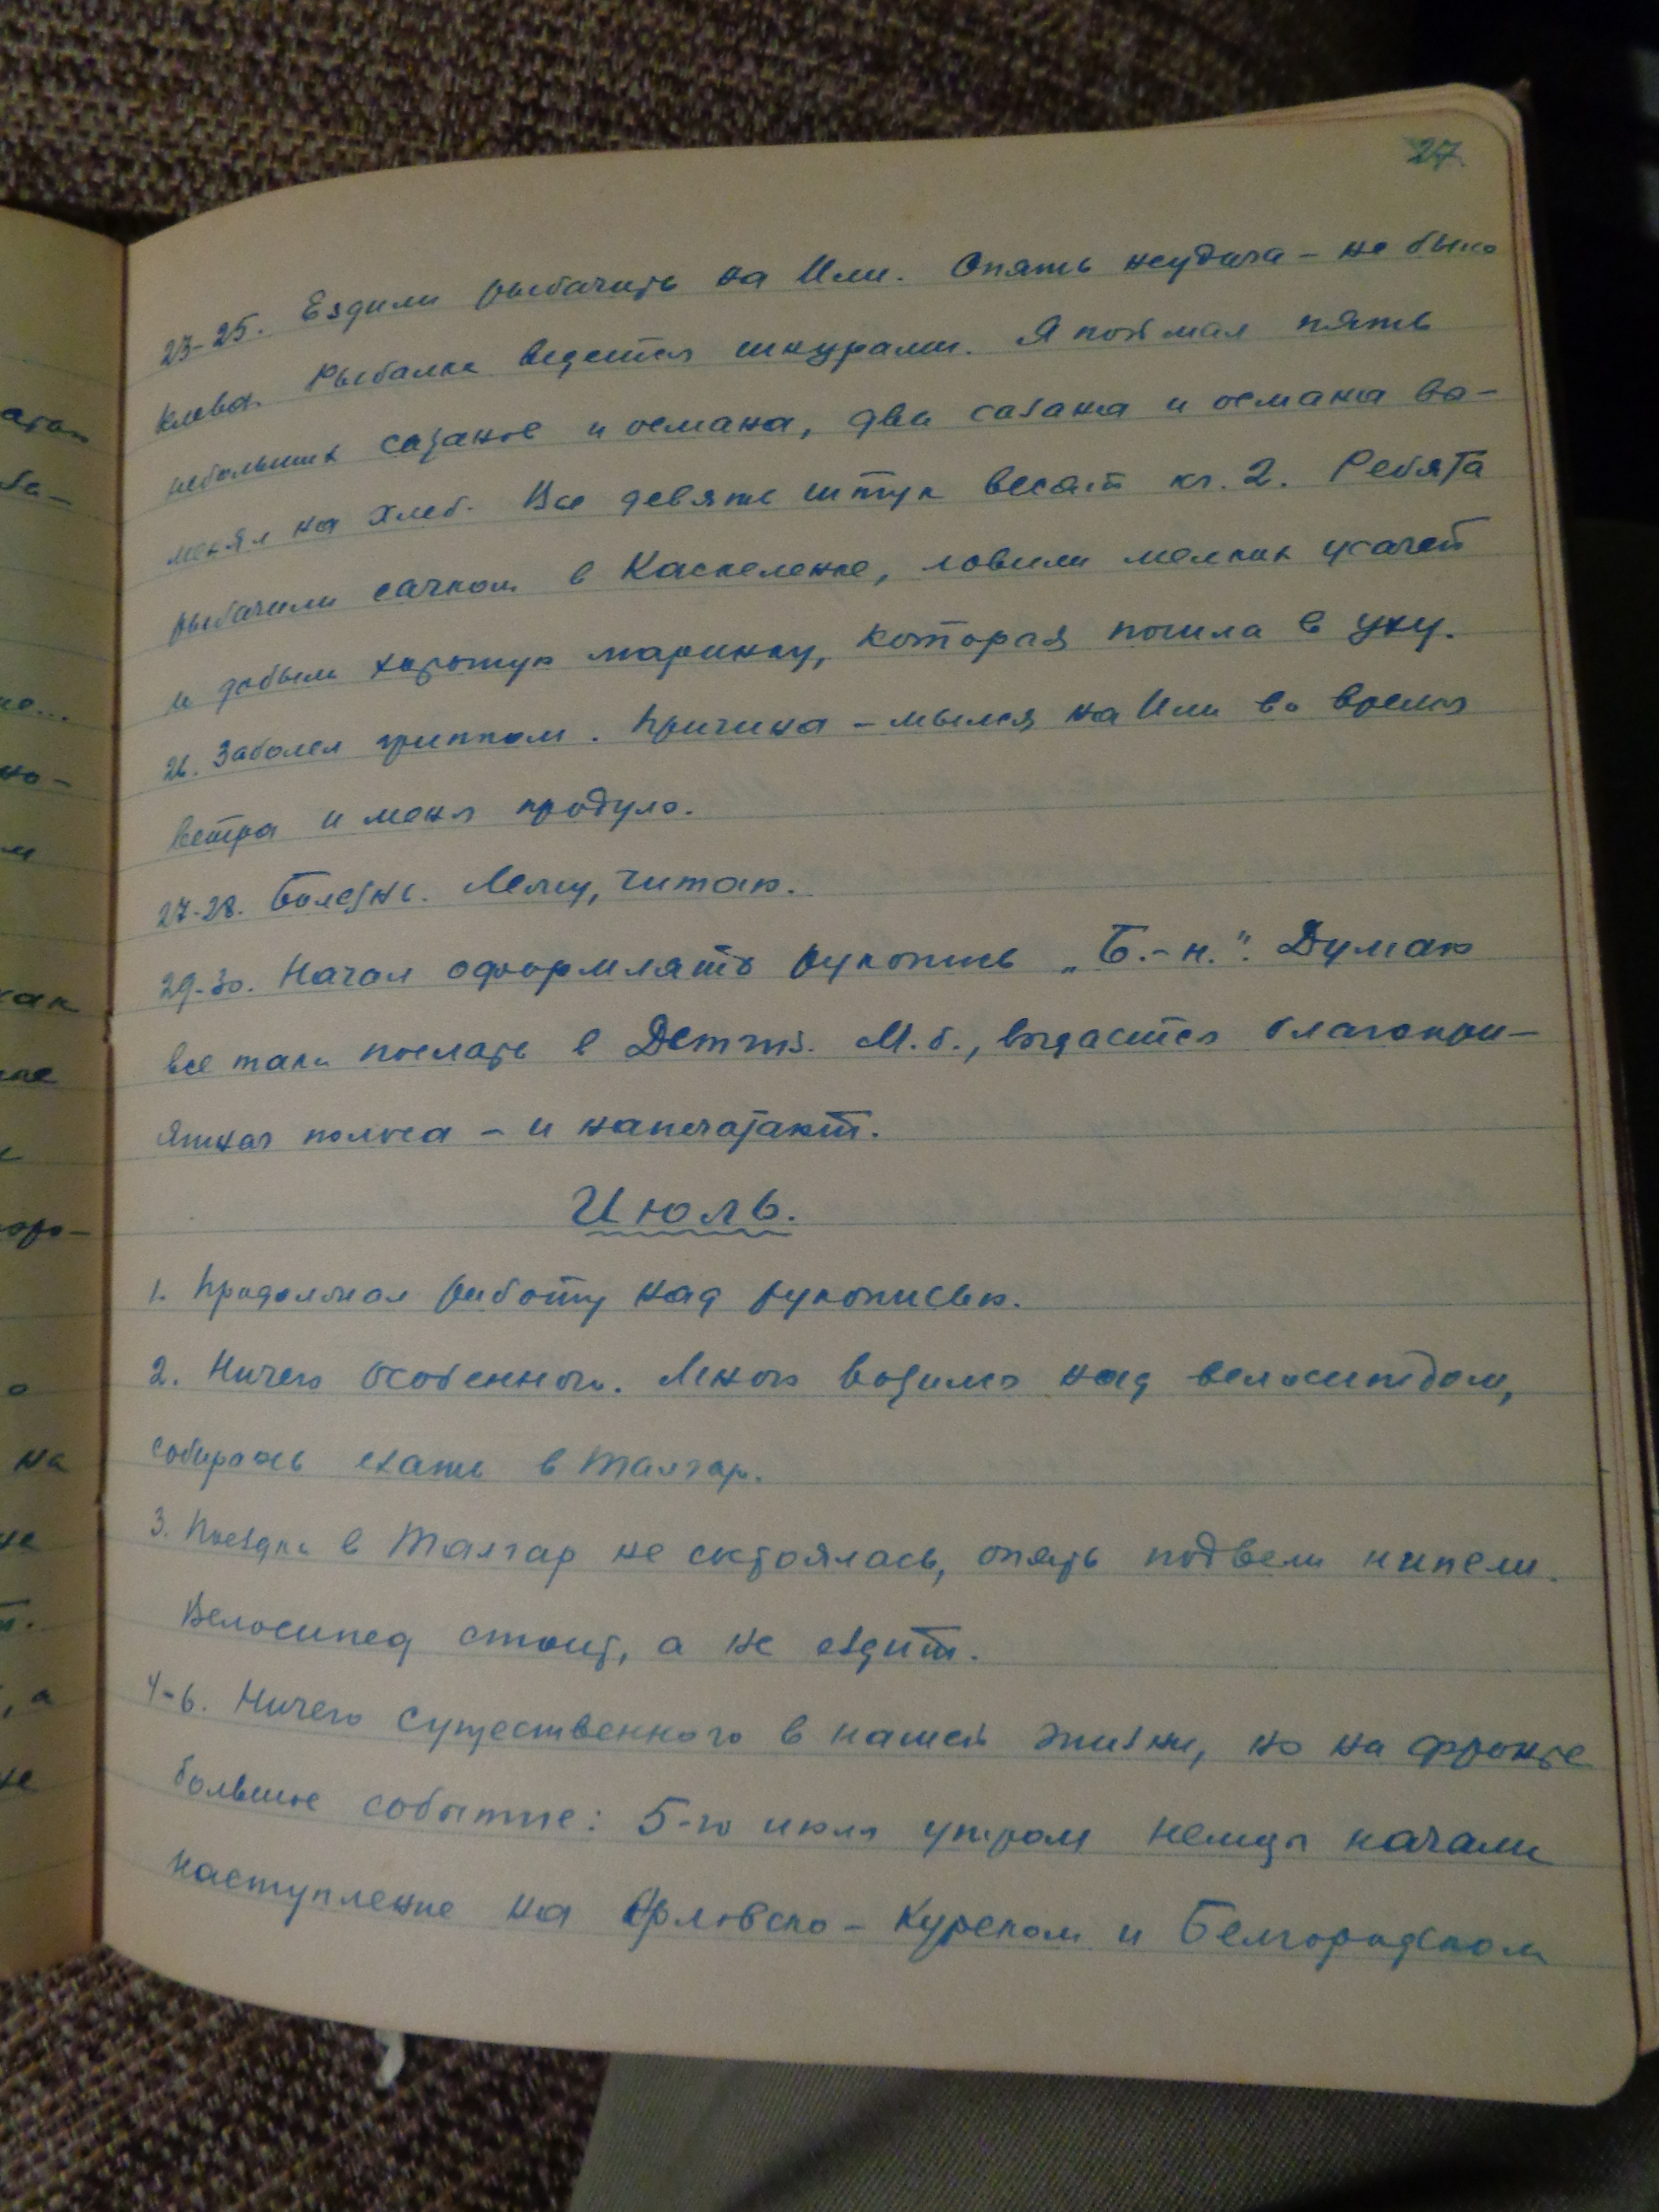 27
23-25. Ездили рыбачить на Или. Опять неудача – не было
клева. Рыбалка ведется шнурами. Я поймал пять
небольших сазанов и османа, два сазана и османа вы-
менял на хлеб. Все девять штук весят кг. 2. Ребята
рыбачили сачком в Каскеленке, ловили мелких усачей
и добыли хорошую маринку, которая пошла в уху.
26. Заболел гриппом. Причина – мылся на Или во время
ветра и меня продуло.
27-28. Болезнь. Лежу, читаю.
29-30. Начал оформлять рукопись „Б.-н.". Думаю
все таки послать в Детгиз. М.б., выдастся благопри-
ятная полоса – и напечатают.
Июль.
1. Продолжал работу над рукописью.
2. Ничего особенного. Много возился над велосипедом,
собираясь ехать в Талгар.
3. Поездка в Талгар не состоялась, опять подвели нипели.
Велосипед стоит, а не ездит.
4-6. Ничего существенного в нашей жизни, но на фронте
большое событие: 5-го июля утром немцы начали
наступление на Орловско-Курском и Белгородском
ак
ба-
но-
м
как
оро-
о
на
не
, а
не